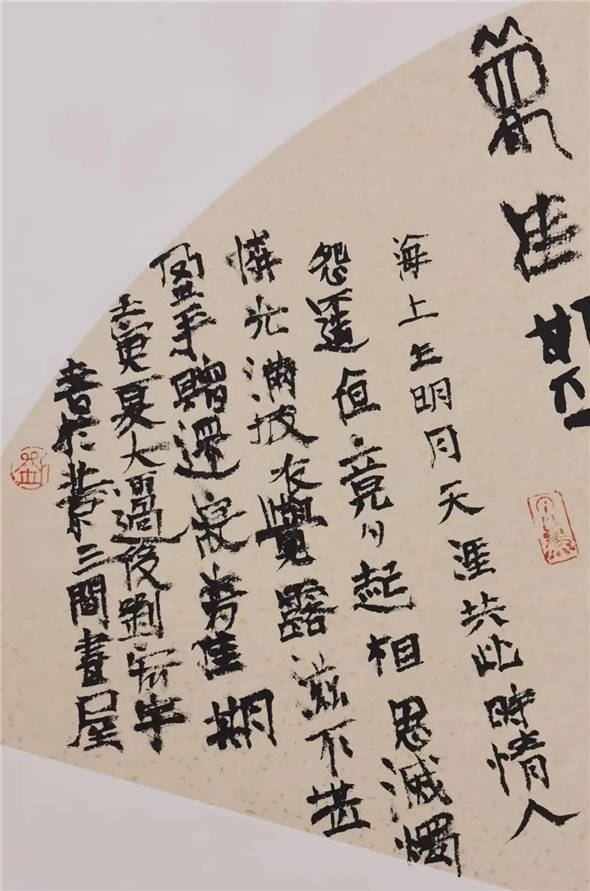 海上生明月天涯共此時情人
怨遙亱竟夕起相思滅燭
憐光滿披衣覺露滋不堪
盈手贈還寢夢佳期
壬寅夏大過後劉
書於三間書屋